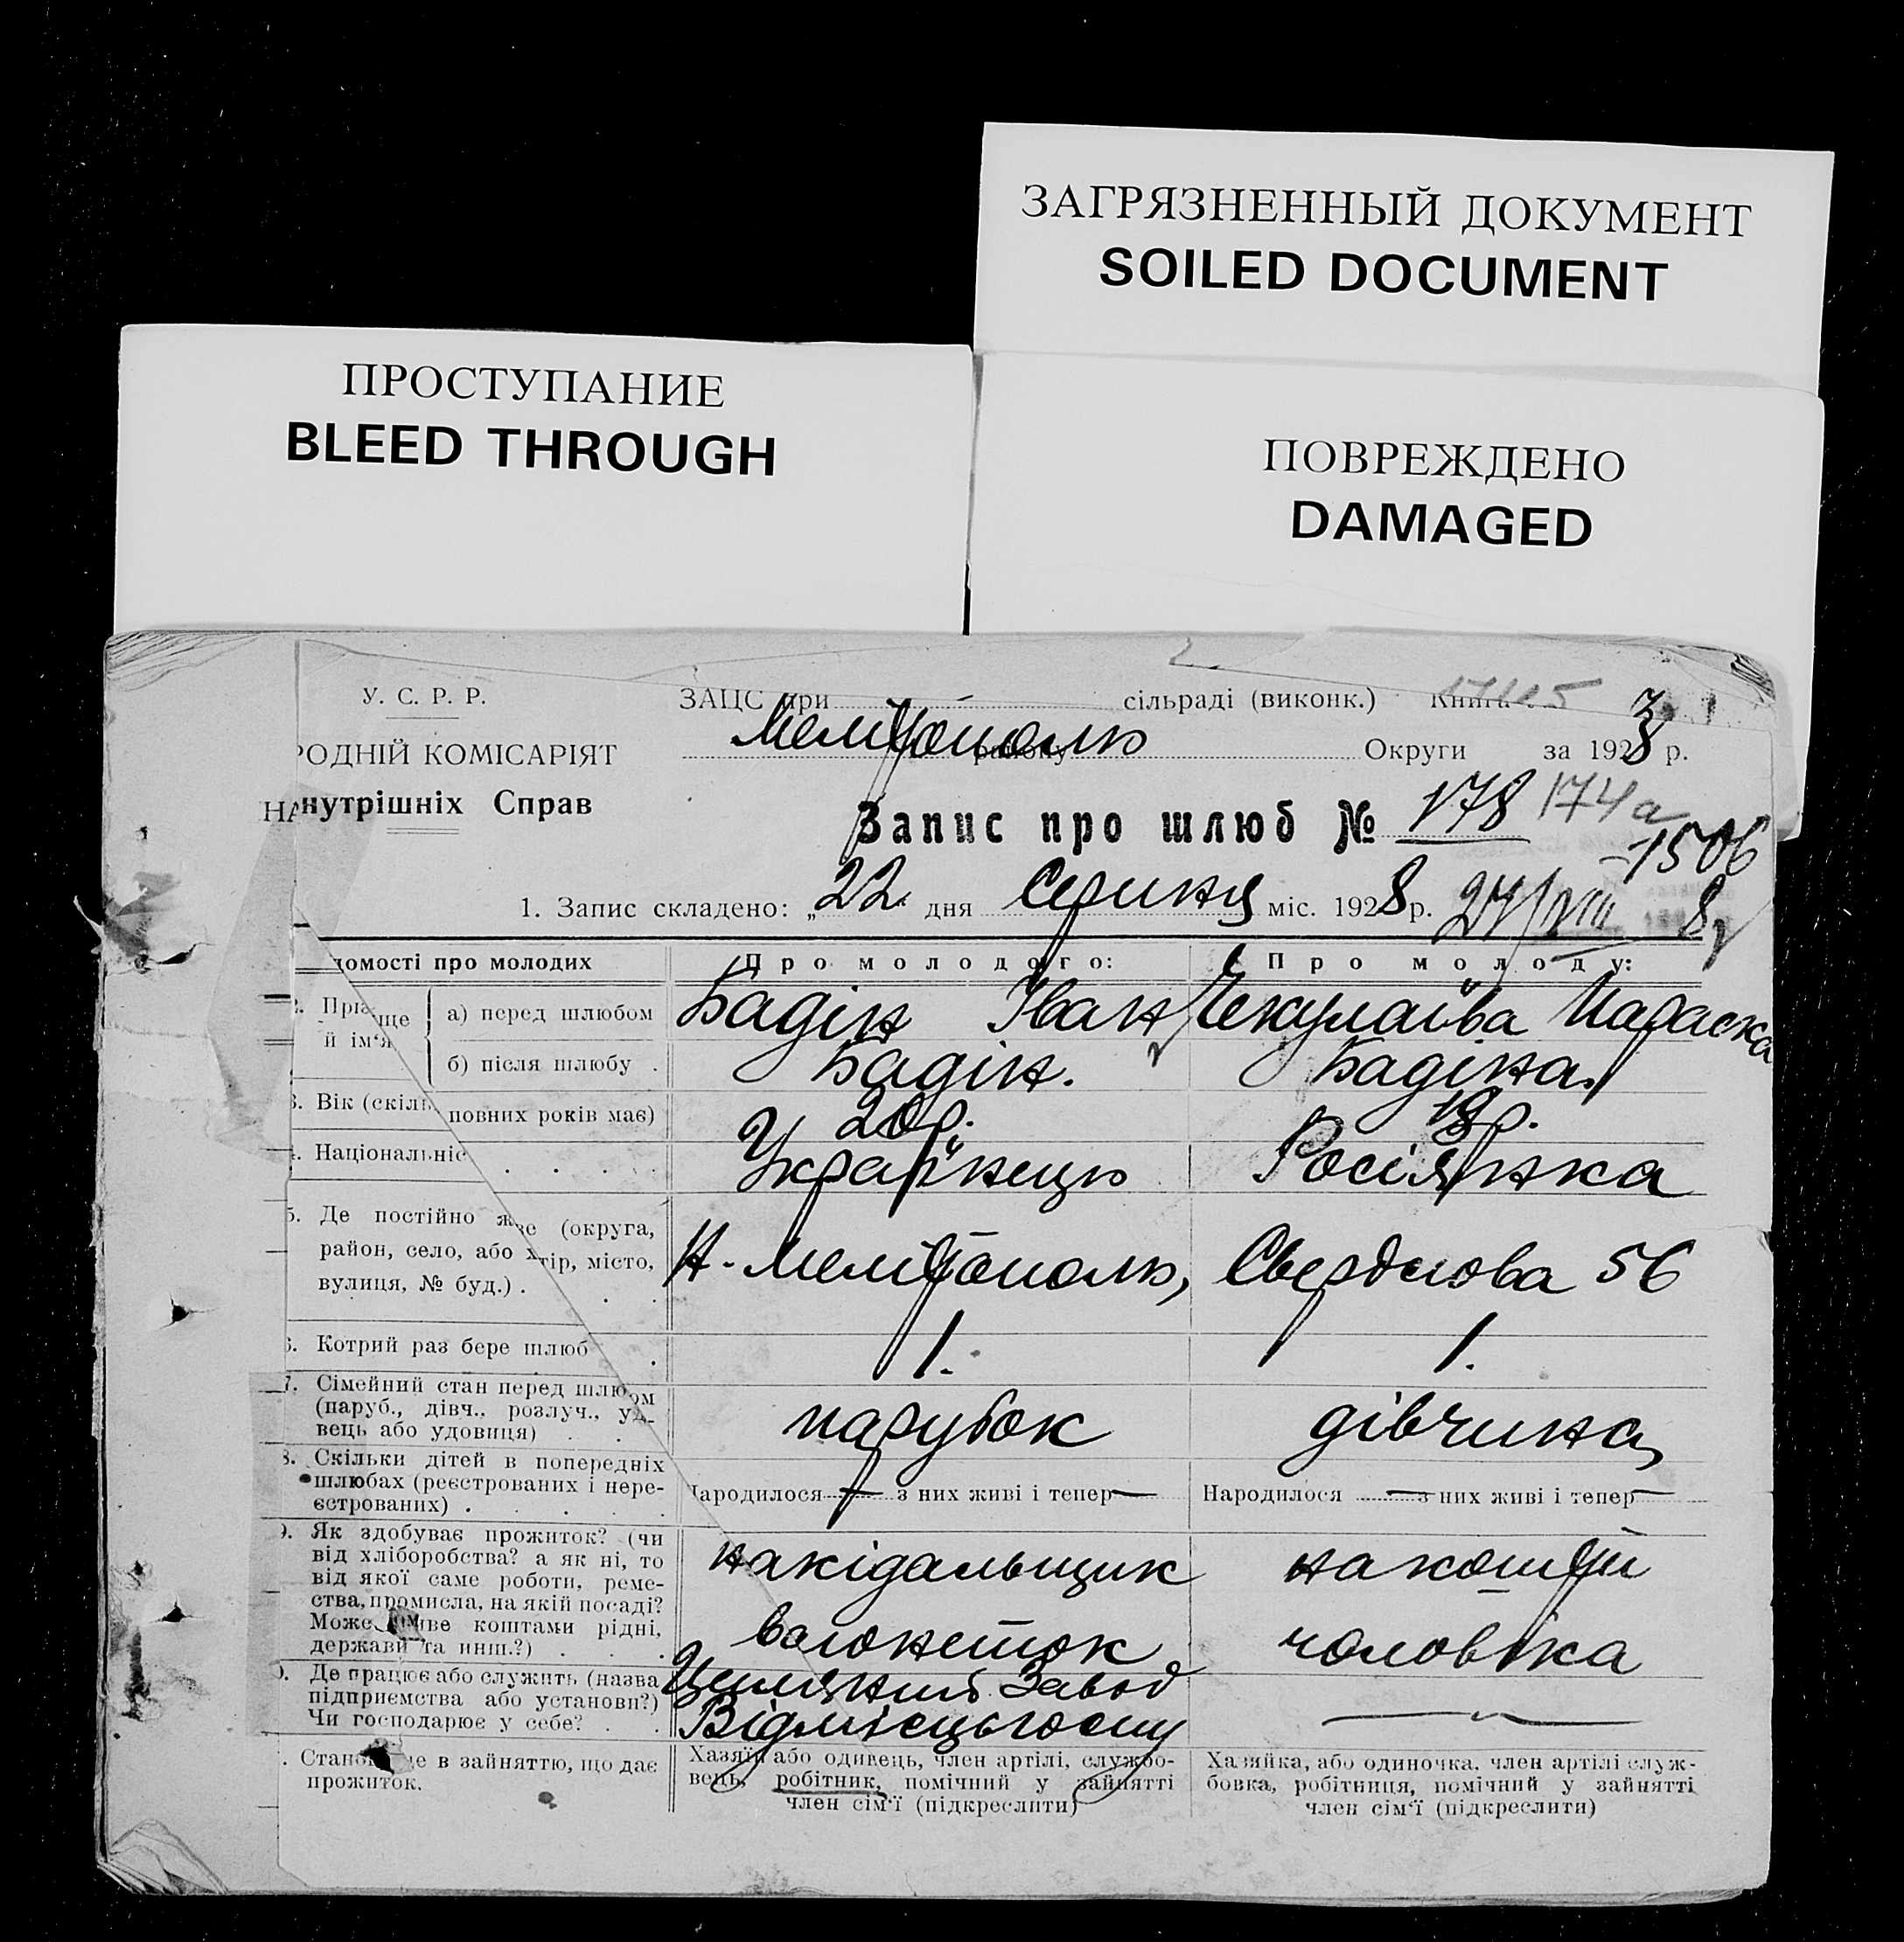 ЗАГРЯЗНЕННЫЙ ДОКУМЕНТ
SOILED DOCUMENT
ПРОСТУПАНИЕ
BLEED THROUGH
ПОВРЕЖДЕНО
DAMAGED
У. С. Р. Р.
ЗАЦС при сільраді (виконк.) Книга
Мелітополь
РОДНІЙ КОМІСАРІЯТ
району Округи за 1928 р.
нутрішніх Справ
Запис про шлюб № 178 174а
-1506
1. Запис складено: „22 дня Серпня міс. 1928 р. 24/VIII 8
домості про молодих Про молодого: Про молоду:
Прі ще й ім'я
а) перед шлюбом Бадін Іван Чекулаїва Параска
б) після шлюбу . Бадін. Бадіна.
3. Вік (скіль повних років має) 20 р. 19 р.
Національніс Українець Росіянка
5. Де постійно живе (округа,
район, село, або хутір, місто,
вулиця, № буд.) .
Н-Мелітополь, Свердлова 56
6. Котрий раз бере шлюб 1. 1.
7. Сімейний стан перед шлюбом
(паруб., дівч., розлуч., уд-
вець або удовиця)
парубок дівчина
8. Скільки дітей в попередніх
шлюбах (реєстрованих і нере-
єстрованих) .
Народилося — з них живі і тепер — Народилося — з них живі і тепер —
9. Як здобуває прожиток? (чи
від хліборобства? а як ні, то
від якої саме роботи, реме-
ства, промисла, на якій посаді?
Може живе коштами рідні,
держави та инш.?)
накідальщик
вагонеток
на кошті
чоловіка
Де працює або служить (назва
підприємства або установи?)
Чи господарює у себе?
Завод
—
Становище в зайняттю, що дає
прожиток.
Хазяїн або одинець, член артілі, службо-
вець, робітник, помічний у зайнятті
член сім'ї (підкреслити)
Хазяйка, або одиночка, член артілі служ-
бовка, робітниця, помічний у зайнятті
член сім'ї (підкреслити)